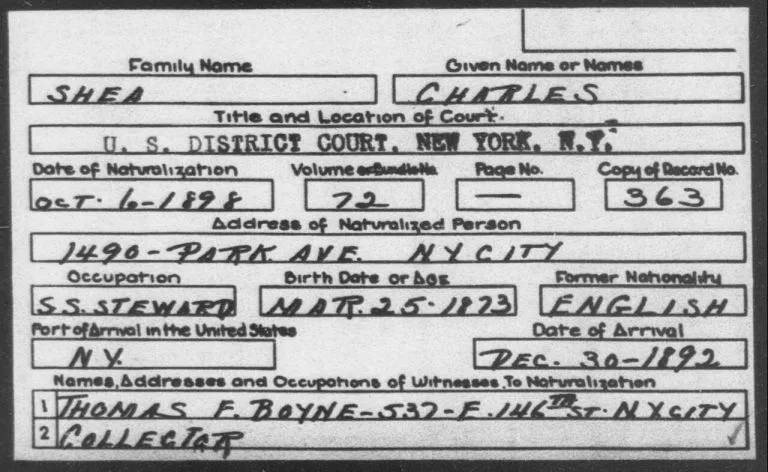 Family Name Given Name or Names
SHEA CHARLES
Title and Location of Court.
U. S. DISTRICT COURT, NEW YORK, N.Y.
Date of Naturalization Volume or Bundle No. Page No. Copy of Record No.
OCT. 6-1898 72 — 363
Address of Naturalized Person
1490-PARK AVE. NY CITY
Occupation Birth Date or Age Former Nationality
S.S. STEWARD MAR. 25-1873 ENGLISH
Port of Arrival in the United States Date of Arrival
N.Y. DEC. 30-1892
Names, Addresses and Occupations of Witnesses To Naturalization
1 THOMAS F. BOYNE-537-E.146TH ST. N.Y. CITY
2 COLLECTOR